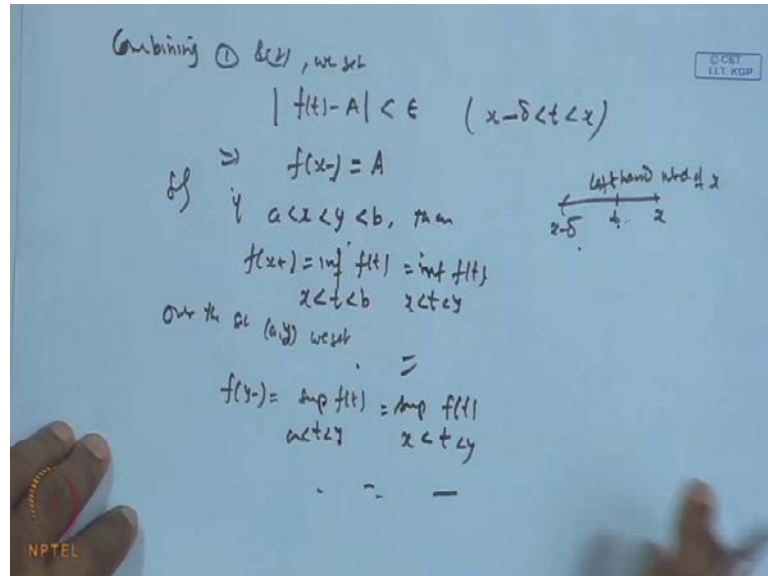 Combining ① &(2), we get
© CET
I.I.T. KGP
|f(t)-A| < ϵ (x-δ<t<x)
⇒ f(x-) = A
Left hand nbd of x
x-δ t x
if a<x<y<b, then
f(x+) = inf f(t) = inf f(t)
x<t<b x<t<y
Over the set (a,y) we get
=
f(y-) = sup f(t) = sup f(t)
a<t<y x<t<y
NPTEL